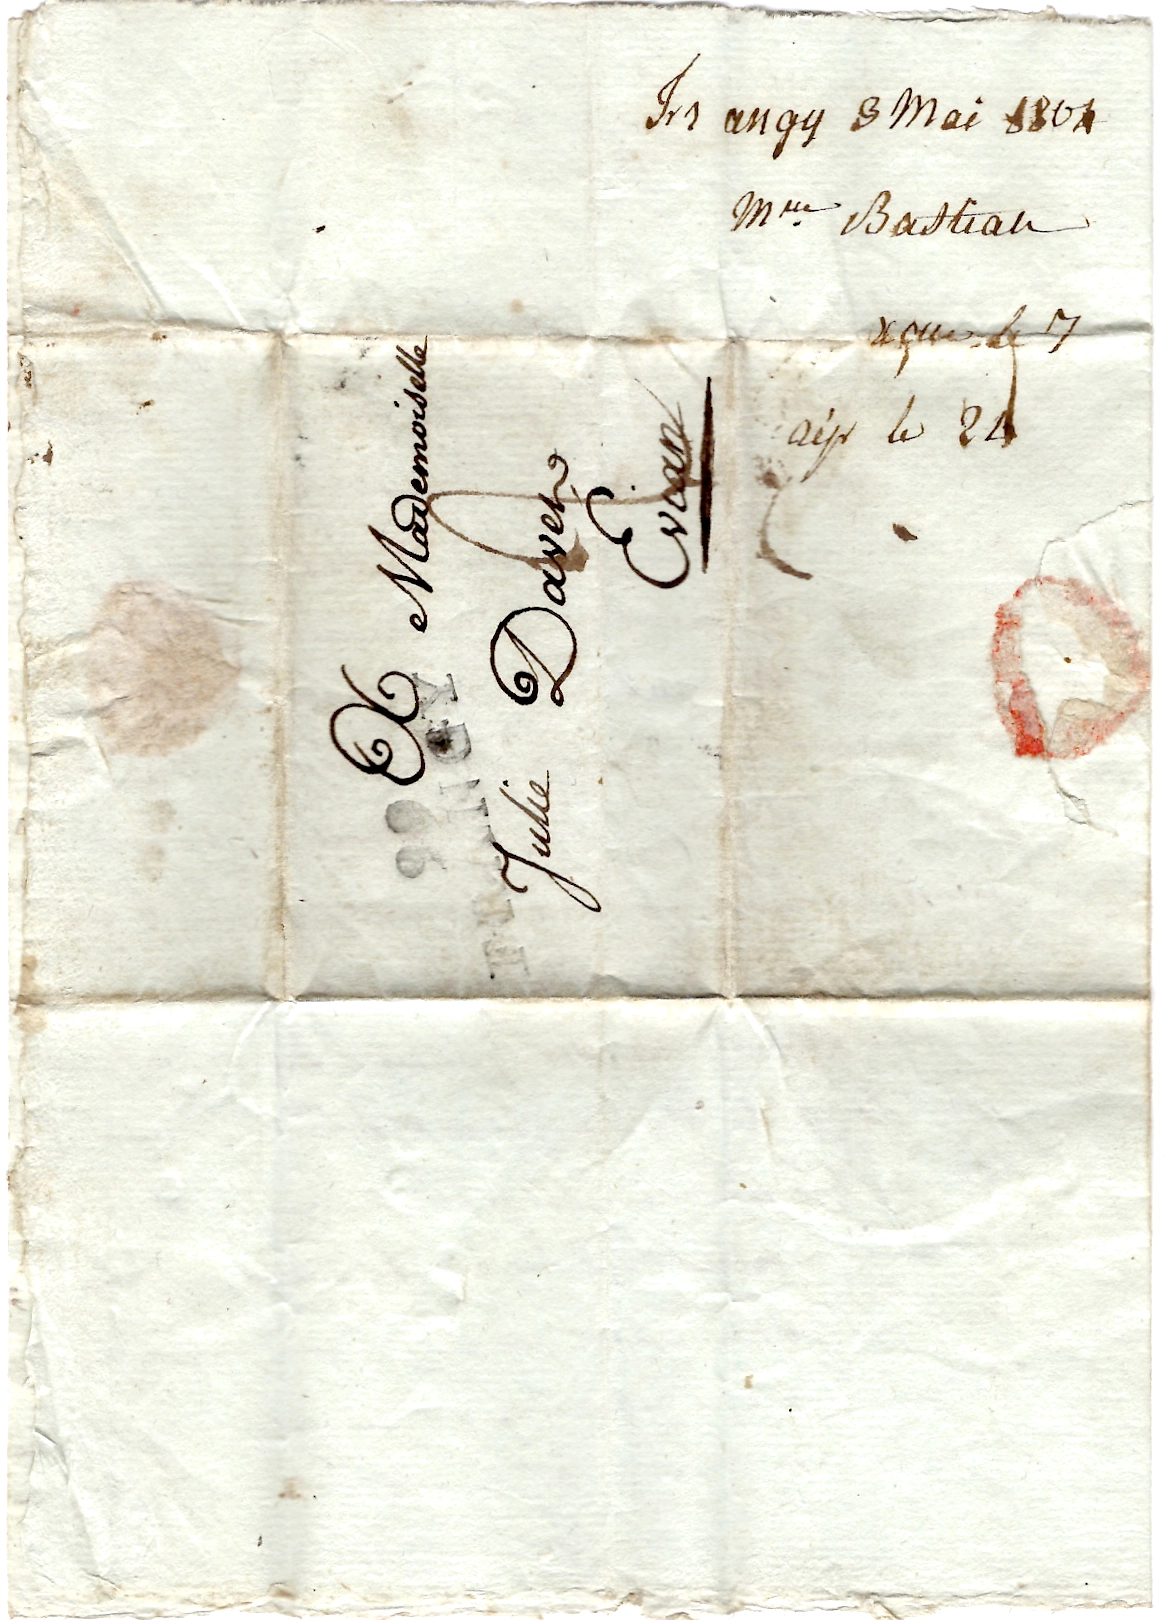 Frangy 3 Mai 1804
Mlle Bastian
reçue le 7
rép le 24
A Mademoiselle
Julie Daver
Evian
99
FRANGY